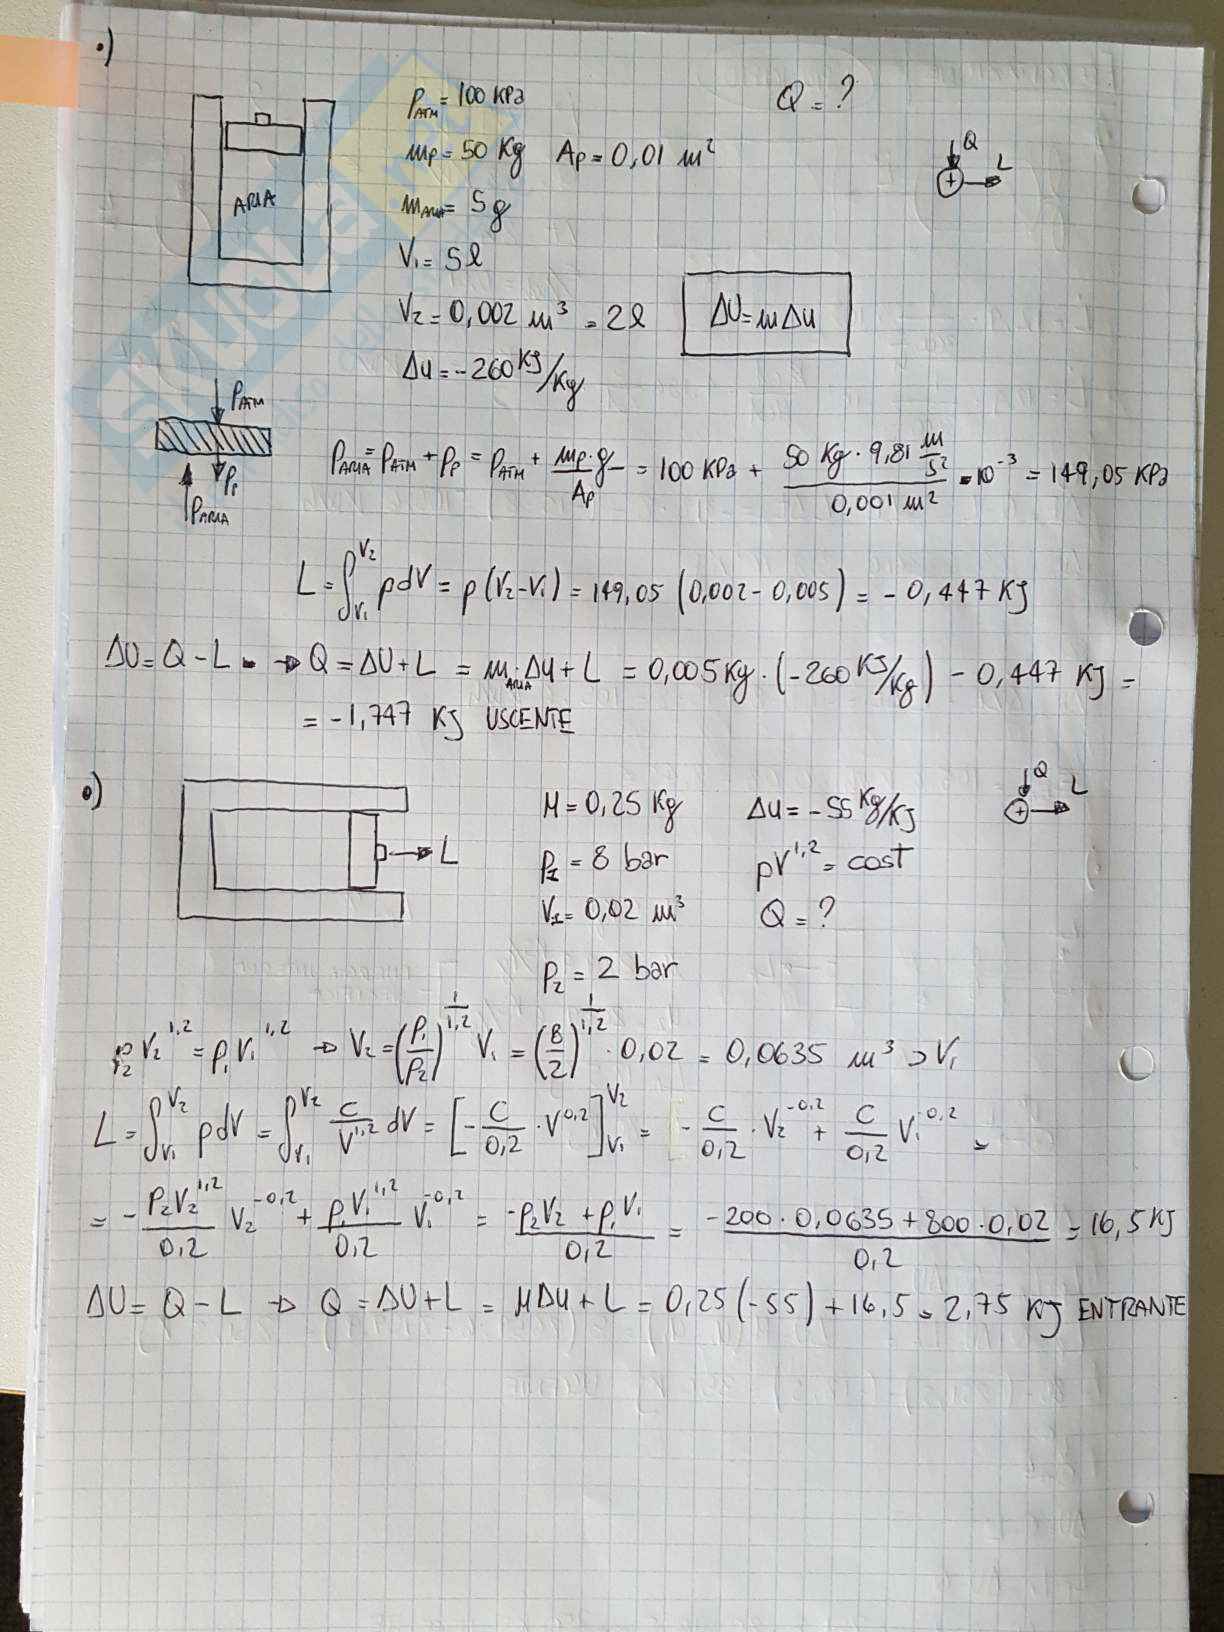 •)
P_ATM = 100 KPa Q = ?
m_P = 50 Kg A_P = 0,01 m²
Q L +
ARIA
m_ARIA = 5 g
V₁ = 5 l
V₂ = 0,002 m³ = 2 l ΔU = m Δu
Δu = -260 KJ/Kg
P_ATM
P_P
P_ARIA
P_ARIA = P_ATM + P_P = P_ATM + m_P·g/A_P = 100 KPa + 50 Kg · 9,81 m/s² / 0,001 m² · 10⁻³ = 149,05 KPa
L = ∫_V₁^V₂ p dV = p (V₂ - V₁) = 149,05 (0,002 - 0,005) = - 0,447 KJ
ΔU = Q - L → Q = ΔU + L = m_ARIA · Δu + L = 0,005 Kg · (-260 KJ/Kg) - 0,447 KJ =
= -1,747 KJ USCENTE
•)
M = 0,25 Kg Δu = -55 Kg/KJ
Q L +
L
P₁ = 8 bar pV^1,2 = cost
V₁ = 0,02 m³ Q = ?
P₂ = 2 bar
P₂ V₂^1,2 = P₁ V₁^1,2 → V₂ = (P₁/P₂)^(1/1,2) V₁ = (8/2)^(1/1,2) · 0,02 = 0,0635 m³ > V₁
L = ∫_V₁^V₂ p dV = ∫_V₁^V₂ C/V^1,2 dV = [- C/0,2 · V^0,2]_V₁^V₂ = - C/0,2 · V₂^-0,2 + C/0,2 V₁^-0,2 =
= - P₂V₂^1,2/0,2 V₂^-0,2 + P₁V₁^1,2/0,2 V₁^-0,2 = -P₂V₂ + P₁V₁ / 0,2 = -200 · 0,0635 + 800 · 0,02 / 0,2 = 16,5 KJ
ΔU = Q - L → Q = ΔU + L = M Δu + L = 0,25 (-55) + 16,5 = 2,75 KJ ENTRANTE